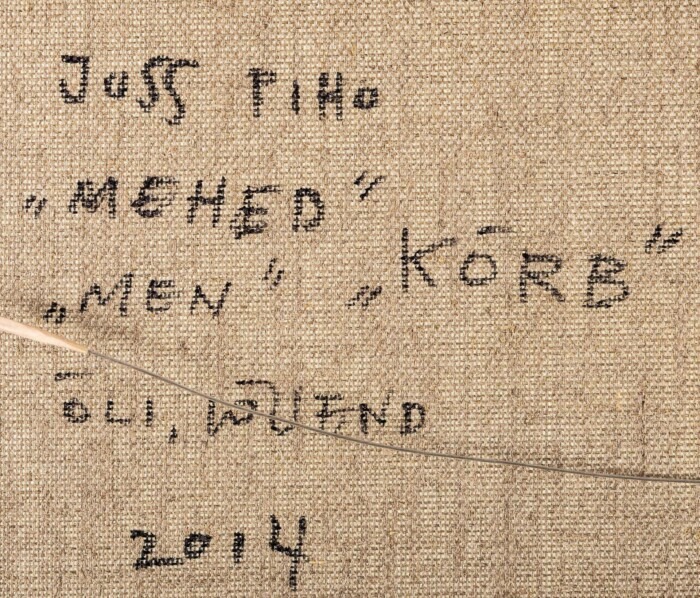 JUSS PIHO
„MEHED”
„MEN” „KÕRB”
ÕLI, LÕUEND
2014